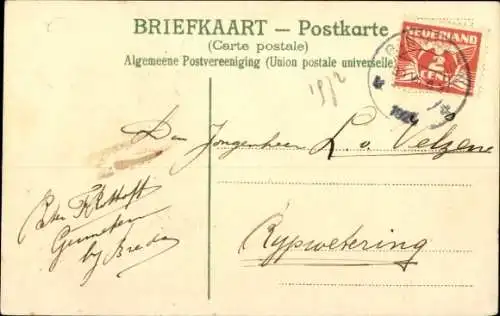 BRIEFKAART — Postkarte
(Carte postale)
Algemeene Postvereeniging (Union postale universelle)
NEDERLAND
2
CENT
1924
Den Jongenheer L. v. Velzene
Rypwetering
Ginneken
by Breda